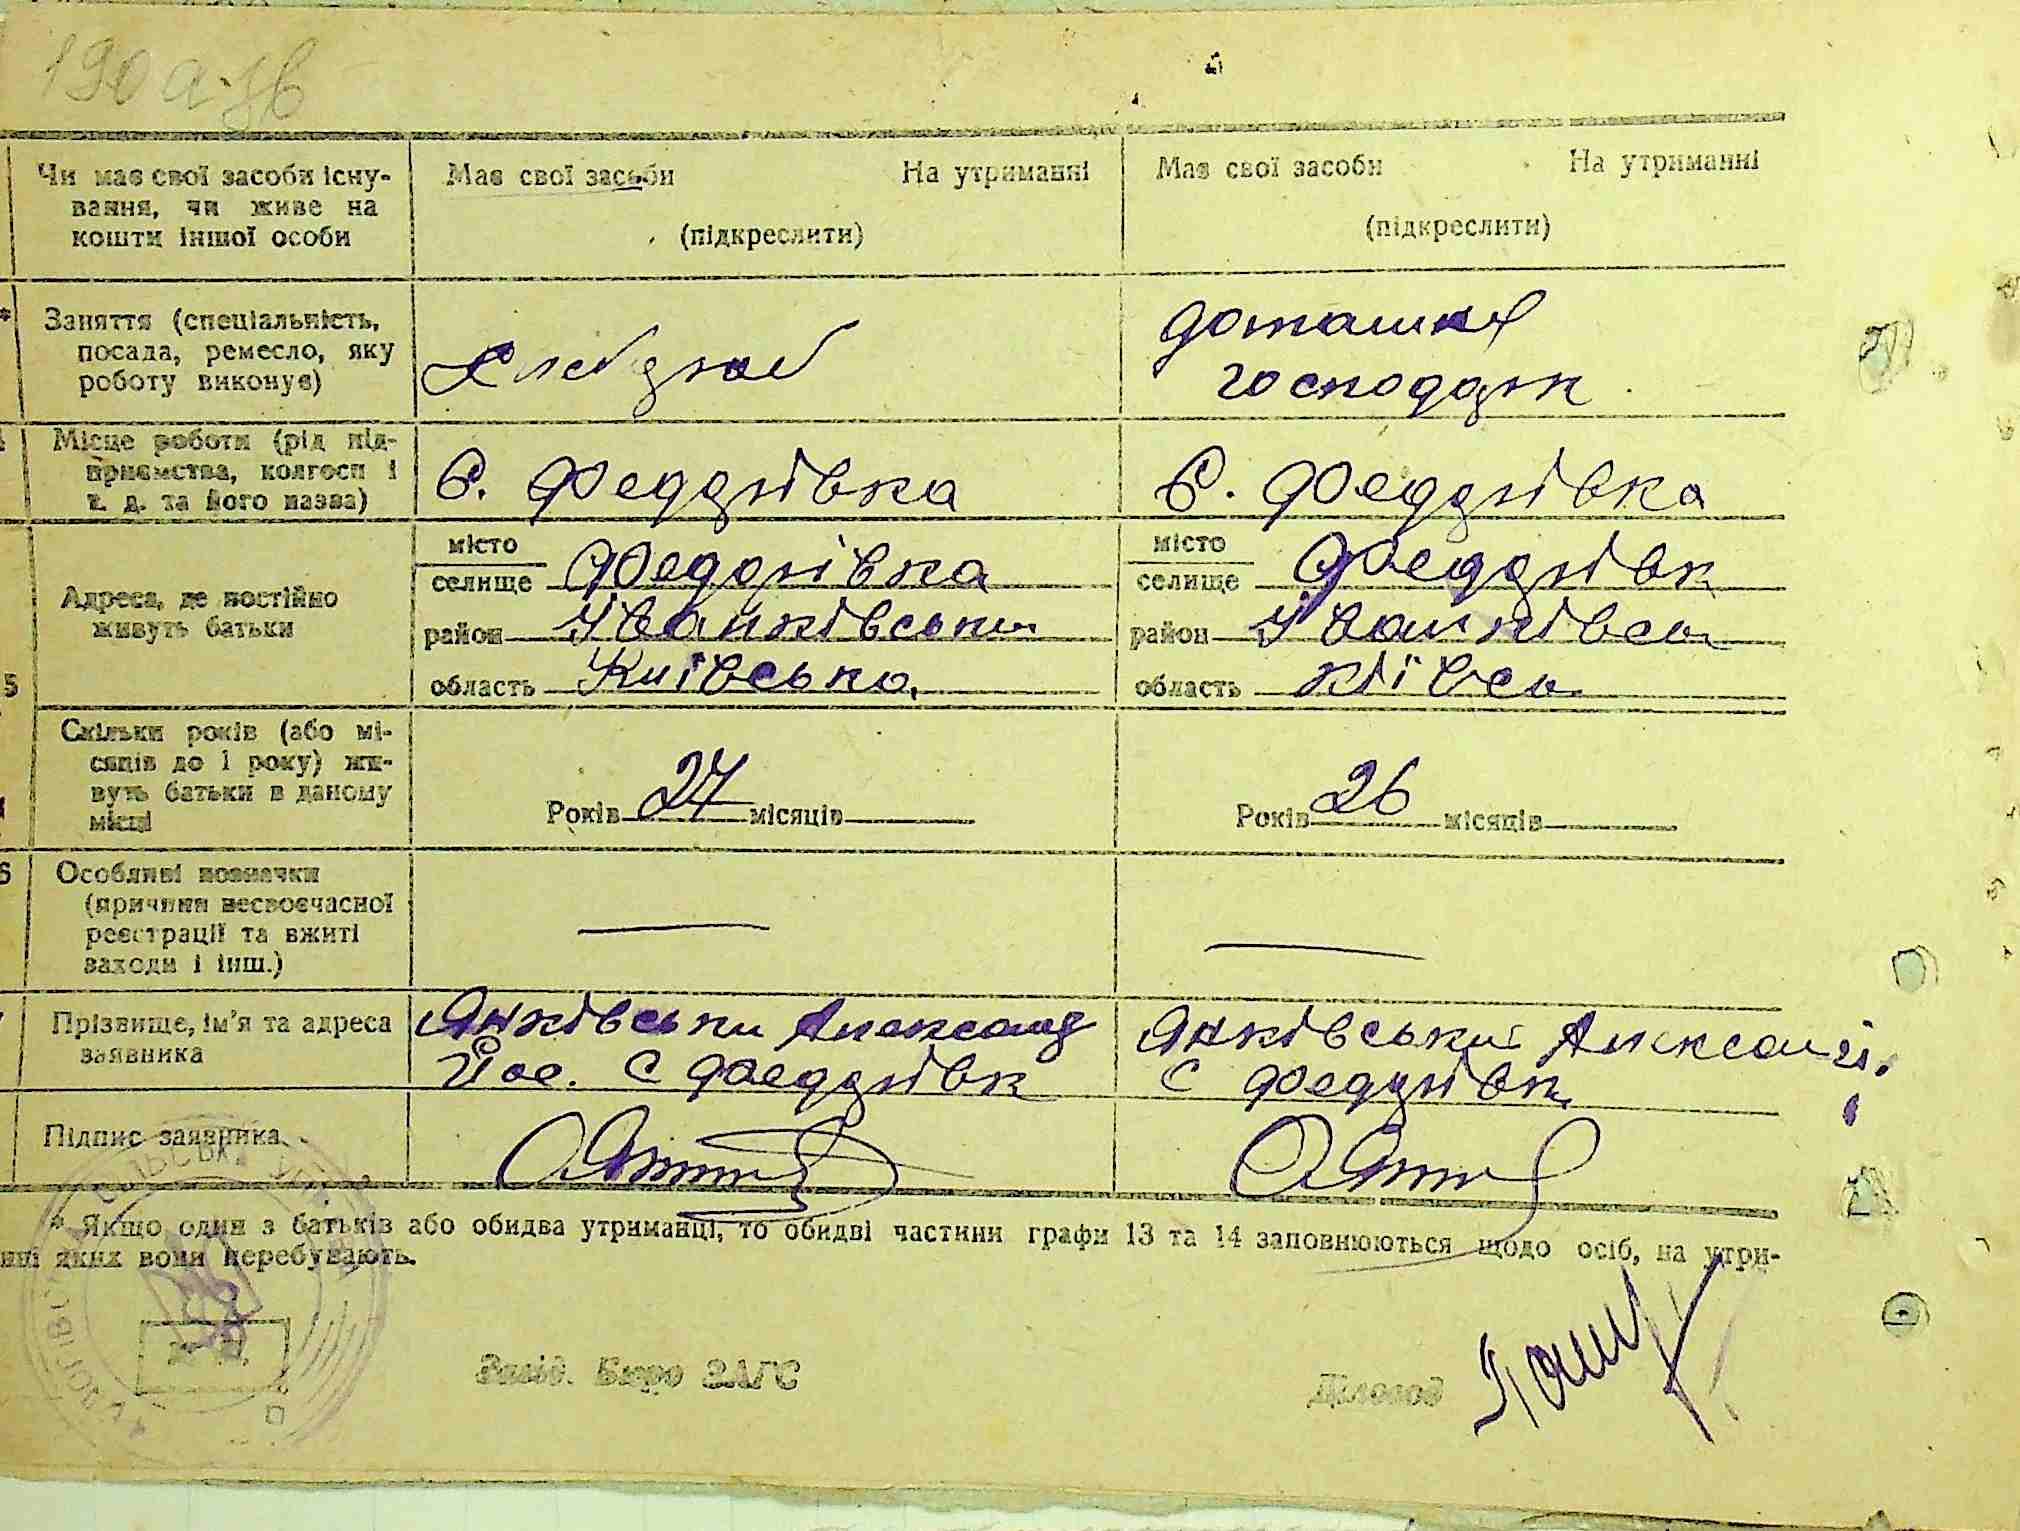 190 а.зв
Чи має свої засоби існу-
вання, чи живе на
кошти іншої особи
Має свої засоби На утриманні
(підкреслити)
Має свої засоби На утриманні
(підкреслити)
Заняття (спеціальність,
посада, ремесло, яку
роботу виконує)
Хлєбороб
домашня
господарк
Місце роботи (рід під-
приємства, колгосп і
т. д. та його назва)
С. Федорівка
С. Федорівка
Адреса, де постійно
живуть батьки
місто
селище Федорівка
район Іванківськи
область Київсько
місто
селище Федорівк
район Іванківсь
область Київсь
5
Скільки років (або мі-
сяців до 1 року) жи-
вуть батьки в даному
місці
Років 27 місяців
Років 26 місяців
6
Особливі позначки
(причини несвоєчасної
реєстрації та вжиті
заходи і інш.)
Прізвище, ім'я та адреса
заявника
Янківськи Александ
Йос. С Федорівк
Янківськи Александ
С Федорівк
Підпис заявника
* Якщо один з батьків або обидва утриманці, то обидві частини графи 13 та 14 заповнюються щодо осіб, на утри-
нні яких вони перебувають.
Завід. Бюро ЗАГС
Діловод